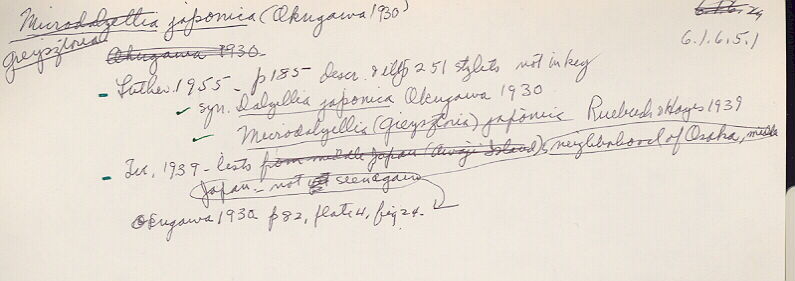 Microdalyellia japonica (Okugawa 1930)
Gieysztoria
Okugawa 1930
6.1.6.5.1
- Luther 1955 - p 185 descr. & illp 251 stylets not in key
✓ syn. Dalyellia japonica Okugawa 1930
✓ Microdalyellia (Gieysztoria) japonica Ruebush & Hayes 1939
- Tu, 1939 - lists from middle Japan (Awaji Island), neighborhood of Osaka, middle
Japan - not seen again
Okugawa 1930 p 82, plate 4, fig 24.